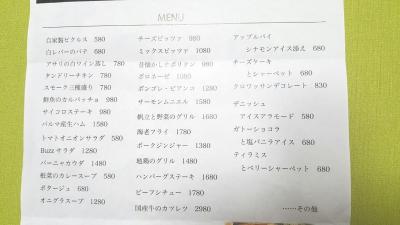 MENU
自家製ピクルス 580
白レバーのパテ 680
アサリの白ワイン蒸し 780
タンドリーチキン 780
スモーク三種盛り 780
鮮魚のカルパッチョ 980
サイコロステーキ 980
パルマ産生ハム 1580
トマトオニオンサラダ 580
Buzzサラダ 1280
バーニャカウダ 1480
根菜のカレースープ 580
ポタージュ 680
オニグラスープ 1280
チーズピッツァ 980
ミックスピッツァ 1080
昔懐かしナポリタン 980
ボロネーゼ 1080
ボンゴレ・ビアンコ 1280
サーモンムニエル 1580
帆立と野菜のグリル 1680
海老フライ 1780
ポークジンジャー 1380
地鶏のグリル 1480
ハンバーグステーキ 1680
ビーフシチュー 1780
国産牛のカツレツ 2980
アップルパイ
シナモンアイス添え 680
チーズケーキ
とシャーベット 680
クロワッサンデコラート 830
デニッシュ
アイスアラモード 580
ガトーショコラ
と塩バニラアイス 680
ティラミス
とベリーシャーベット 680
……その他